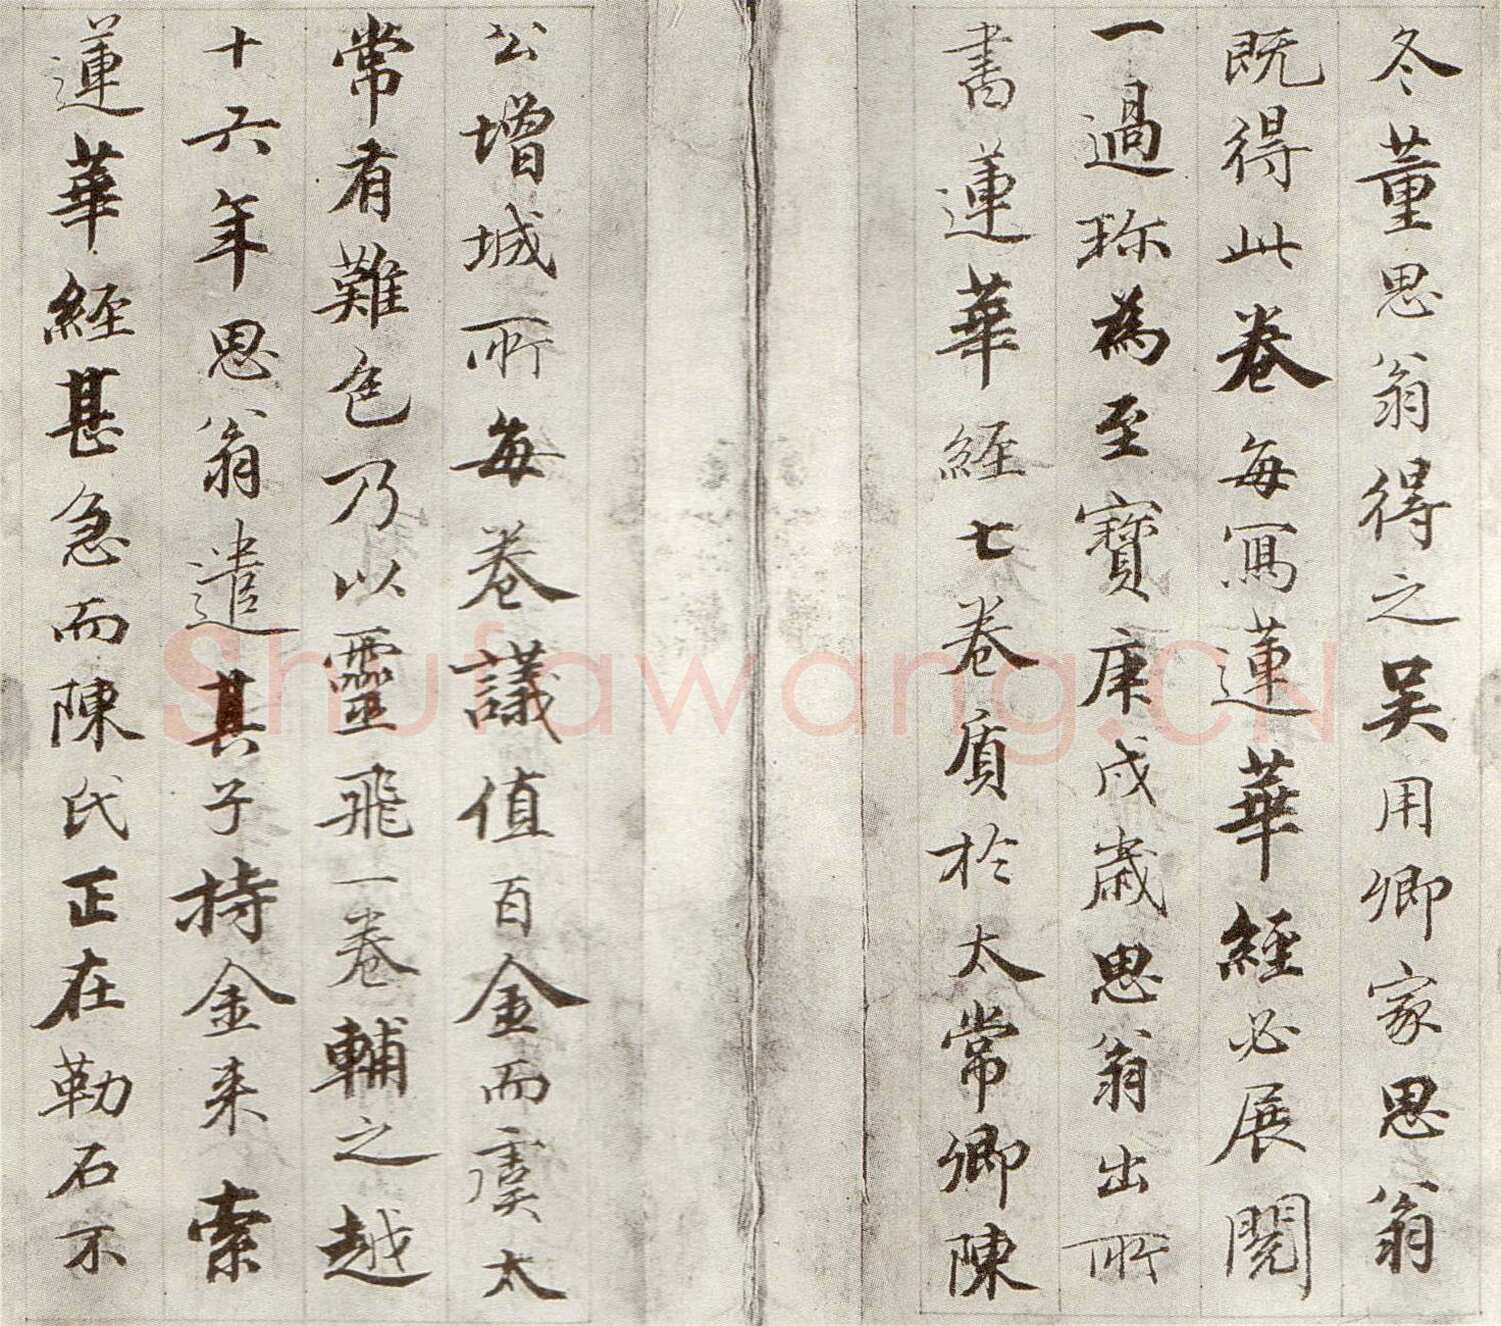 冬董思翁得之吴用卿家思翁
既得此卷每寫蓮華經必展閱
一過珎為至寶庚戌歲思翁出所
書蓮華經七卷質於太常卿陳
公增城所每卷議值百金而虞太
常有難色乃以靈飛一卷輔之越
十六年思翁遣其子持金来索
蓮華經甚急而陳氏正在勒石不
Shufawang.CN